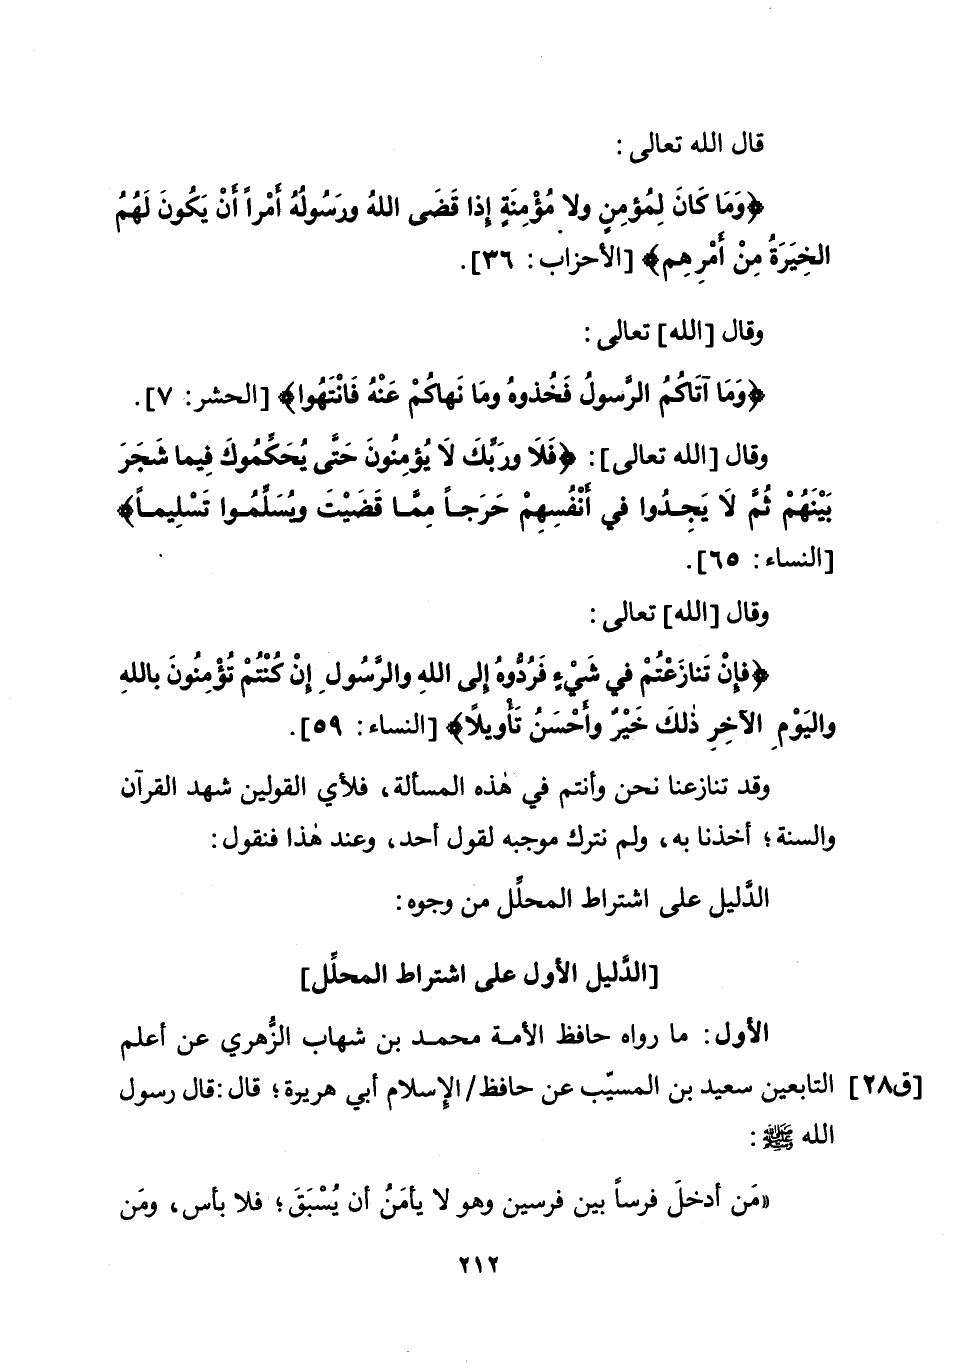 قال الله تعالى :
﴿وَمَا كَانَ لِمُؤمِنٍ ولا مُؤْمِنَةٍ إِذا قَضَى اللهُ ورَسُولُهُ أَمْراً أَنْ يَكُونَ لَهُمُ
الخِيَرَةُ مِنْ أَمْرِهِم﴾ [الأحزاب: ٣٦].
وقال [الله] تعالى :
﴿وَمَا آتَاكُمُ الرَّسولُ فَخُذوهُ ومَا نَهاكُمْ عَنْهُ فَانْتَهُوا﴾ [الحشر: ٧].
وقال [الله تعالى]: ﴿فَلَا ورَبِّكَ لَا يُؤمِنُونَ حَتَّى يُحَكِّمُوكَ فِيما شَجَرَ
بَيْنَهُمْ ثُمَّ لَا يَجِدُوا في أَنْفُسِهِمْ حَرَجاً مِمَّا قَضَيْتَ ويُسَلِّمُوا تَسْلِيماً﴾
[النساء: ٦٥].
وقال [الله] تعالى :
﴿فإِنْ تَنازَعْتُمْ في شَيْءٍ فَرُدُّوهُ إِلى اللهِ والرَّسُولِ إِنْ كُنْتُمْ تُؤْمِنُونَ باللهِ
واليَوْمِ الآخِرِ ذٰلكَ خَيْرٌ وأَحْسَنُ تَأْويلًا﴾ [النساء: ٥٩].
وقد تنازعنا نحن وأنتم في هٰذه المسألة، فلأي القولين شهد القرآن
والسنة؛ أخذنا به، ولم نترك موجبه لقول أحد، وعند هٰذا فنقول:
الدَّليل على اشتراط المحلِّل من وجوه:
[الدَّليل الأول على اشتراط المحلِّل]
الأول: ما رواه حافظ الأمة محمد بن شهاب الزُّهري عن أعلم
[ق٢٨] التابعين سعيد بن المسيّب عن حافظ/ الإسلام أبي هريرة؛ قال: قال رسول
الله ﷺ :
«مَن أدخلَ فرساً بين فرسين وهو لا يأمَنُ أن يُسْبَقَ؛ فلا بأس، ومَن
٢١٢